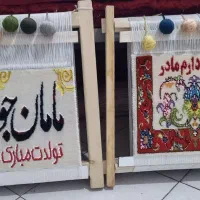 مامان جو
تولدت مبارک
دارم مادر